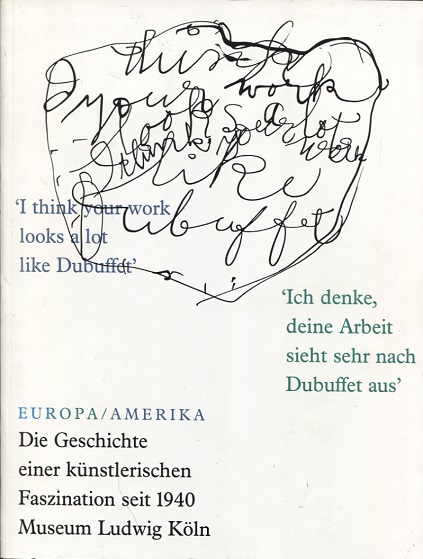 I think
your work
looks a lot
like
Dubuffet
‘I think your work
looks a lot
like Dubuffet’
‘Ich denke,
deine Arbeit
sieht sehr nach
Dubuffet aus’
EUROPA/AMERIKA
Die Geschichte
einer künstlerischen
Faszination seit 1940
Museum Ludwig Köln